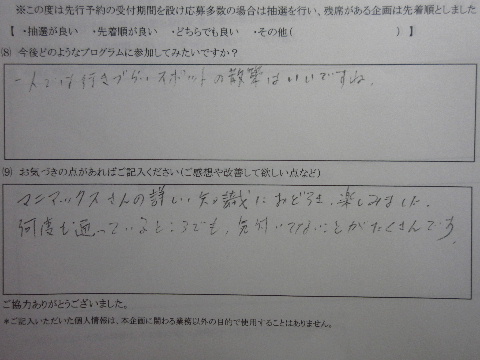 ※この度は先行予約の受付期間を設け応募多数の場合は抽選を行い、残席がある企画は先着順としました
【 ・抽選が良い ・先着順が良い ・どちらでも良い ・その他( ) 】
(8) 今後どのようなプログラムに参加してみたいですか?
一人では行きづらいスポットの散策はいいですね。
(9) お気づきの点があればご記入ください(ご感想や改善して欲しい点など)
マニマックスさんの詳しい知識におどろき、楽しみました。
何度も通っているところでも、気付いてないことがたくさんです。
ご協力ありがとうございました。
*ご記入いただいた個人情報は、本企画に関わる業務以外の目的で使用することはありません。